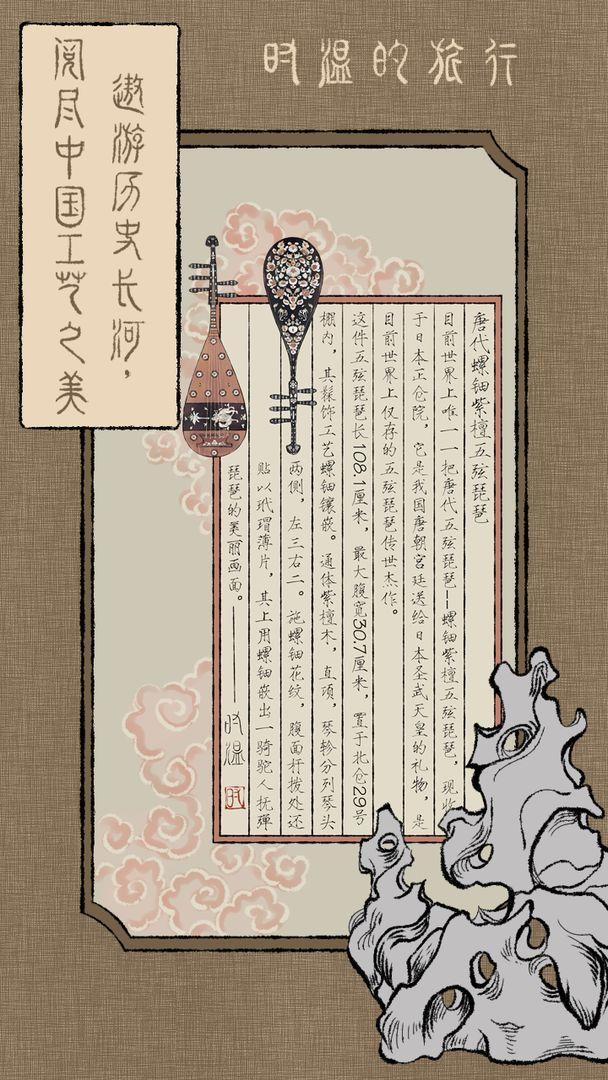 时温的旅行
遨游历史长河，
阅尽中国工艺之美
唐代螺钿紫檀五弦琵琶
目前世界上唯一一把唐代五弦琵琶—螺钿紫檀五弦琵琶，现收
于日本正仓院，它是我国唐朝宫廷送给日本圣武天皇的礼物，是
目前世界上仅存的五弦琵琶传世杰作。
这件五弦琵琶长108.1厘米，最大腹宽30.7厘米，置于北仓29号
棚内，其髹饰工艺螺钿镶嵌。通体紫檀木，直项，琴轸分列琴头
两侧，左三右二。施螺钿花纹，腹面杆拨处还
贴以玳瑁薄片，其上用螺钿嵌出一骑驼人抚弹
琵琶的美丽画面。——时温
时